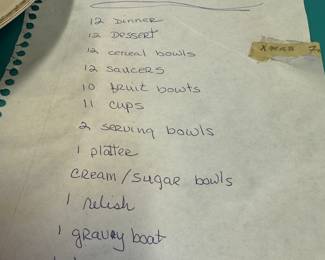 12 Dinner
12 Dessert
12 cereal bowls
12 saucers
10 fruit bowls
11 cups
2 serving bowls
1 platter
cream/sugar bowls
1 relish
1 gravey boat